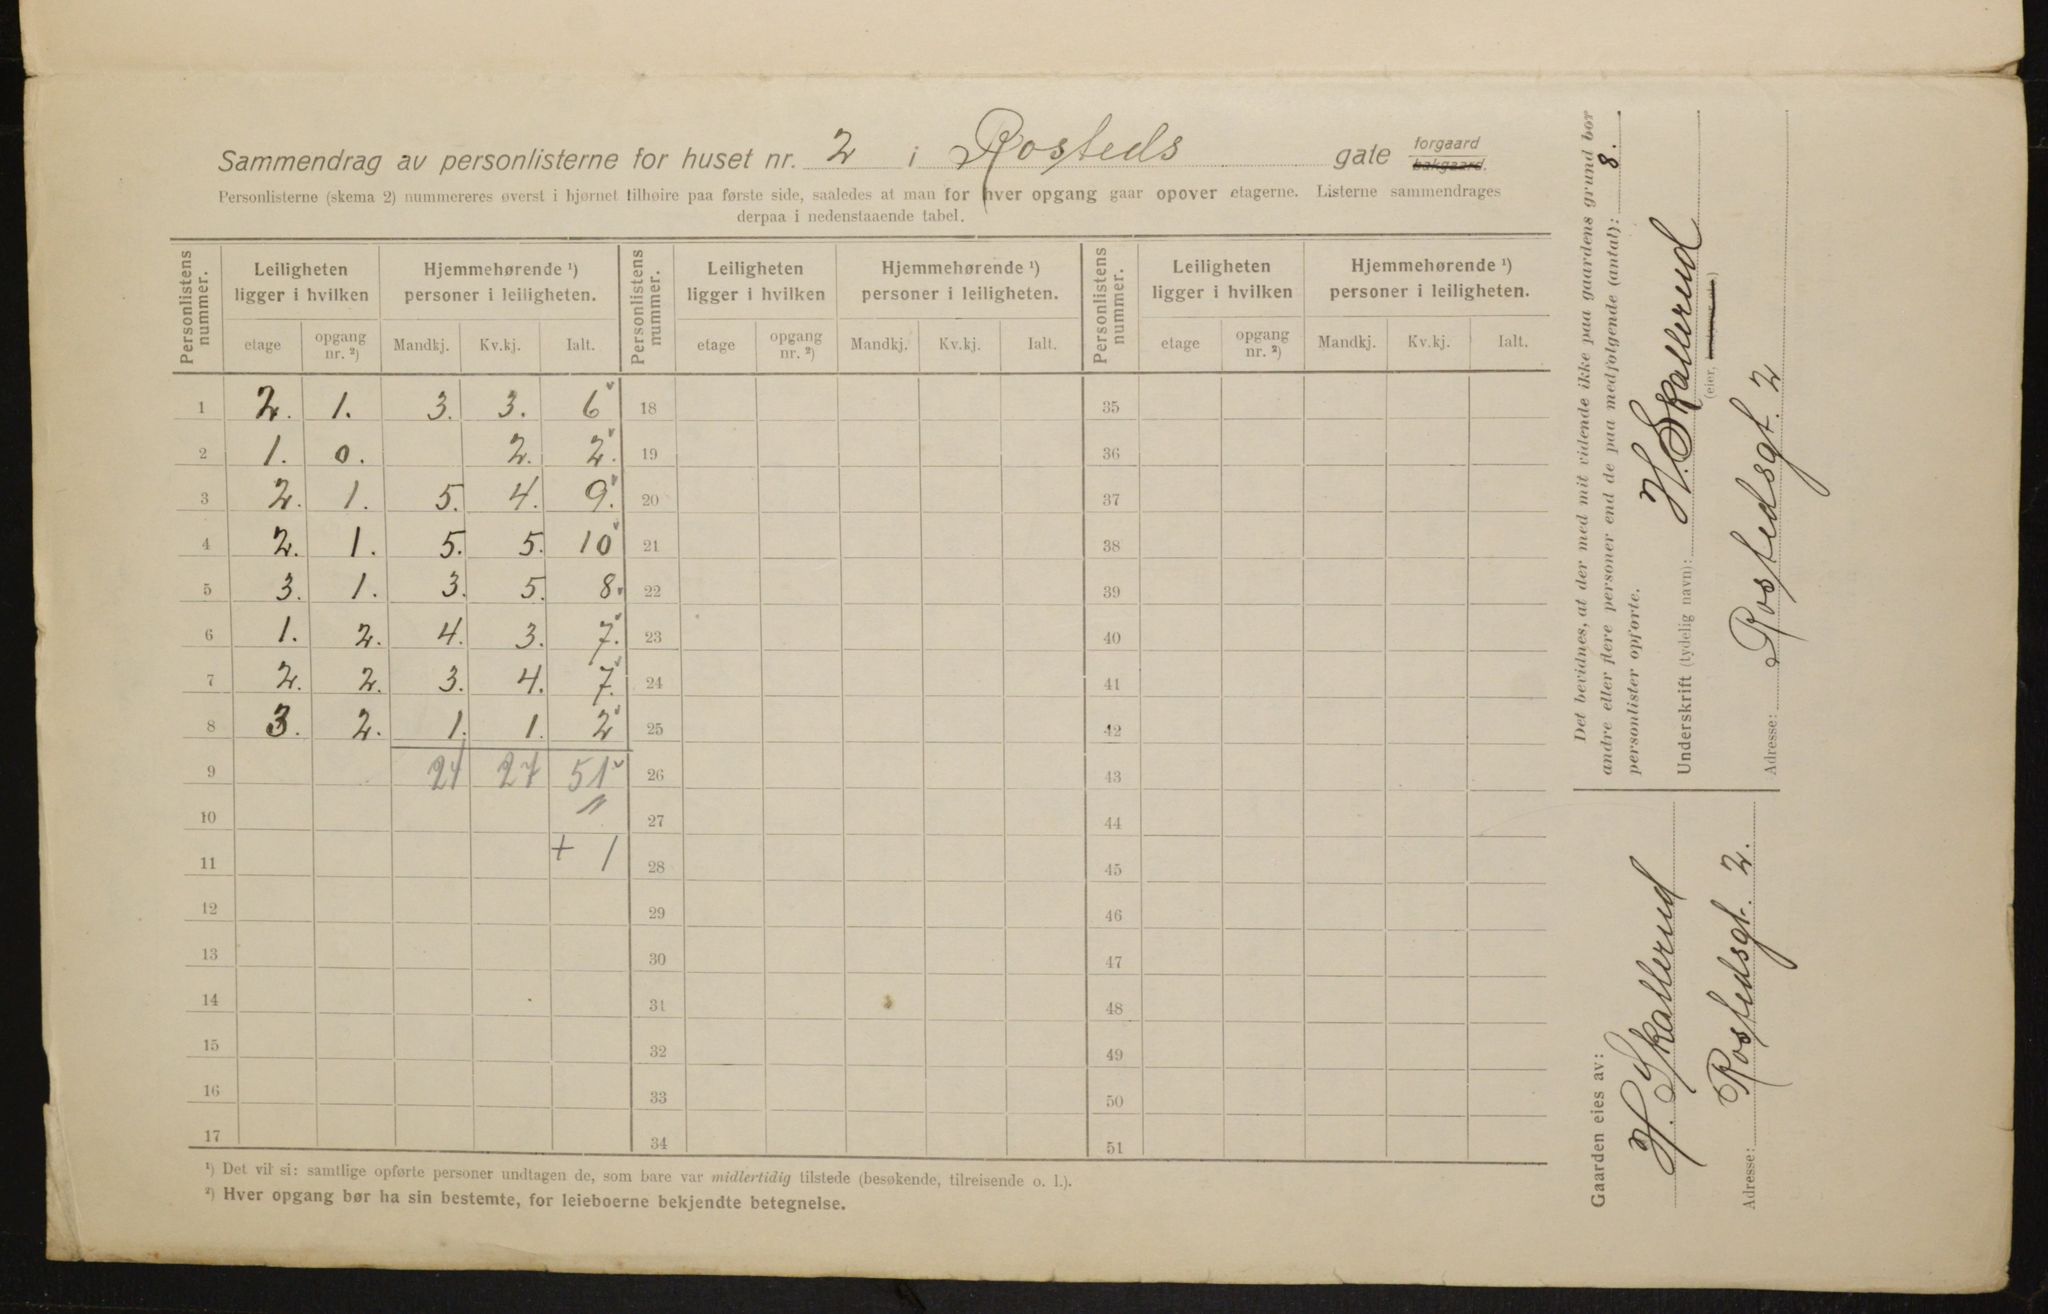 Sammendrag av personlisterne for huset nr. 2 i Rosteds gate forgaard bakgaard.
Personlisterne (skema 2) nummereres øverst i hjørnet tilhøire paa første side, saaledes at man for hver opgang gaar opover etagerne. Listerne sammendrages
derpaa i nedenstaaende tabel.
Personlistens nummer. Leiligheten ligger i hvilken Hjemmehørende ¹) personer i leiligheten. Personlistens nummer. Leiligheten ligger i hvilken Hjemmehørende ¹) personer i leiligheten. Personlistens nummer. Leiligheten ligger i hvilken Hjemmehørende ¹) personer i leiligheten.
etage opgang nr. ²) Mandkj. Kv.kj. Ialt. etage opgang nr. ²) Mandkj. Kv.kj. Ialt. etage opgang nr. ²) Mandkj. Kv.kj. Ialt.
1 2. 1. 3. 3. 6 18 35
2 1. 0. 2. 2. 19 36
3 2. 1. 5. 4. 9. 20 37
4 2. 1. 5. 5. 10 21 38
5 3. 1. 3. 5. 8. 22 39
6 1. 2. 4. 3. 7. 23 40
7 2. 2. 3. 4. 7. 24 41
8 3. 2. 1. 1. 2 25 42
9 24 27 51 26 43
10 27 44
11 + 1 28 45
12 29 46
13 30 47
14 31 48
15 32 49
16 33 50
17 34 51
¹) Det vil si: samtlige opførte personer undtagen de, som bare var midlertidig tilstede (besøkende, tilreisende o. l.).
²) Hver opgang bør ha sin bestemte, for leieboerne bekjendte betegnelse.
Det bevidnes, at der med mit vidende ikke paa gaardens grund bor
andre eller flere personer end de paa medfølgende (antal): 8.
personlister opførte.
Underskrift (tydelig navn): H. Skallerud
(eier,
Adresse: Rostedsgt. 2
Gaarden eies av:
H. Skallerud
Adresse: Rostedsgt. 2.